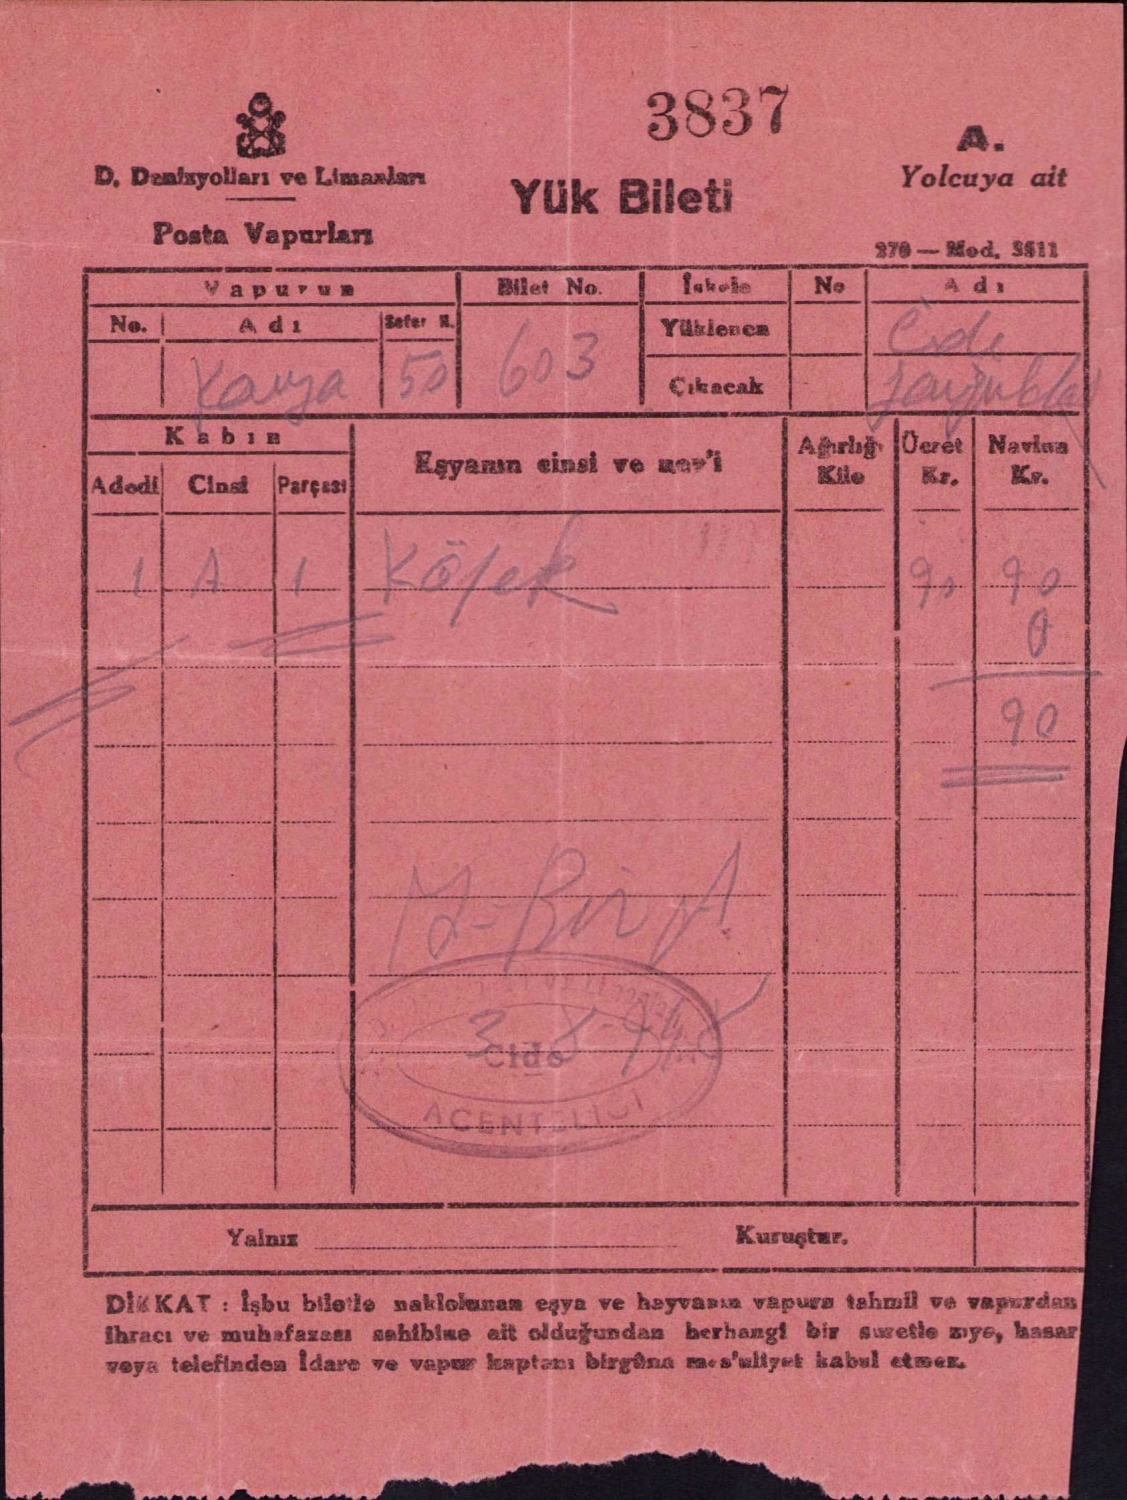 3837
D. Denizyolları ve Limanları
Posta Vapurları
Yük Bileti
A.
Yolcuya ait
270 — Mod. 3511
Vapurun
Bilet No.
İskele
No
Adı
No.
Adı
Sefer N.
Yüklenen
Cide
50
603
Çıkacak
Kabin
Eşyanın cinsi ve nev'i
Ağırlığı Kilo
Ücret Kr.
Navlun Kr.
Adedi
Cinsi
Parçası
1 A 1 Köpek 90 90
0
90
3-8-
Cide
ACENTELİĞİ
Yalnız
Kuruştur.
DİKKAT : İşbu biletle naklolunan eşya ve hayvanın vapura tahmil ve vapurdan
ihracı ve muhafazası sahibine ait olduğundan herhangi bir suretle zıya, hasar
veya telefinden İdare ve vapur kaptanı birgûna mes'uliyet kabul etmez.